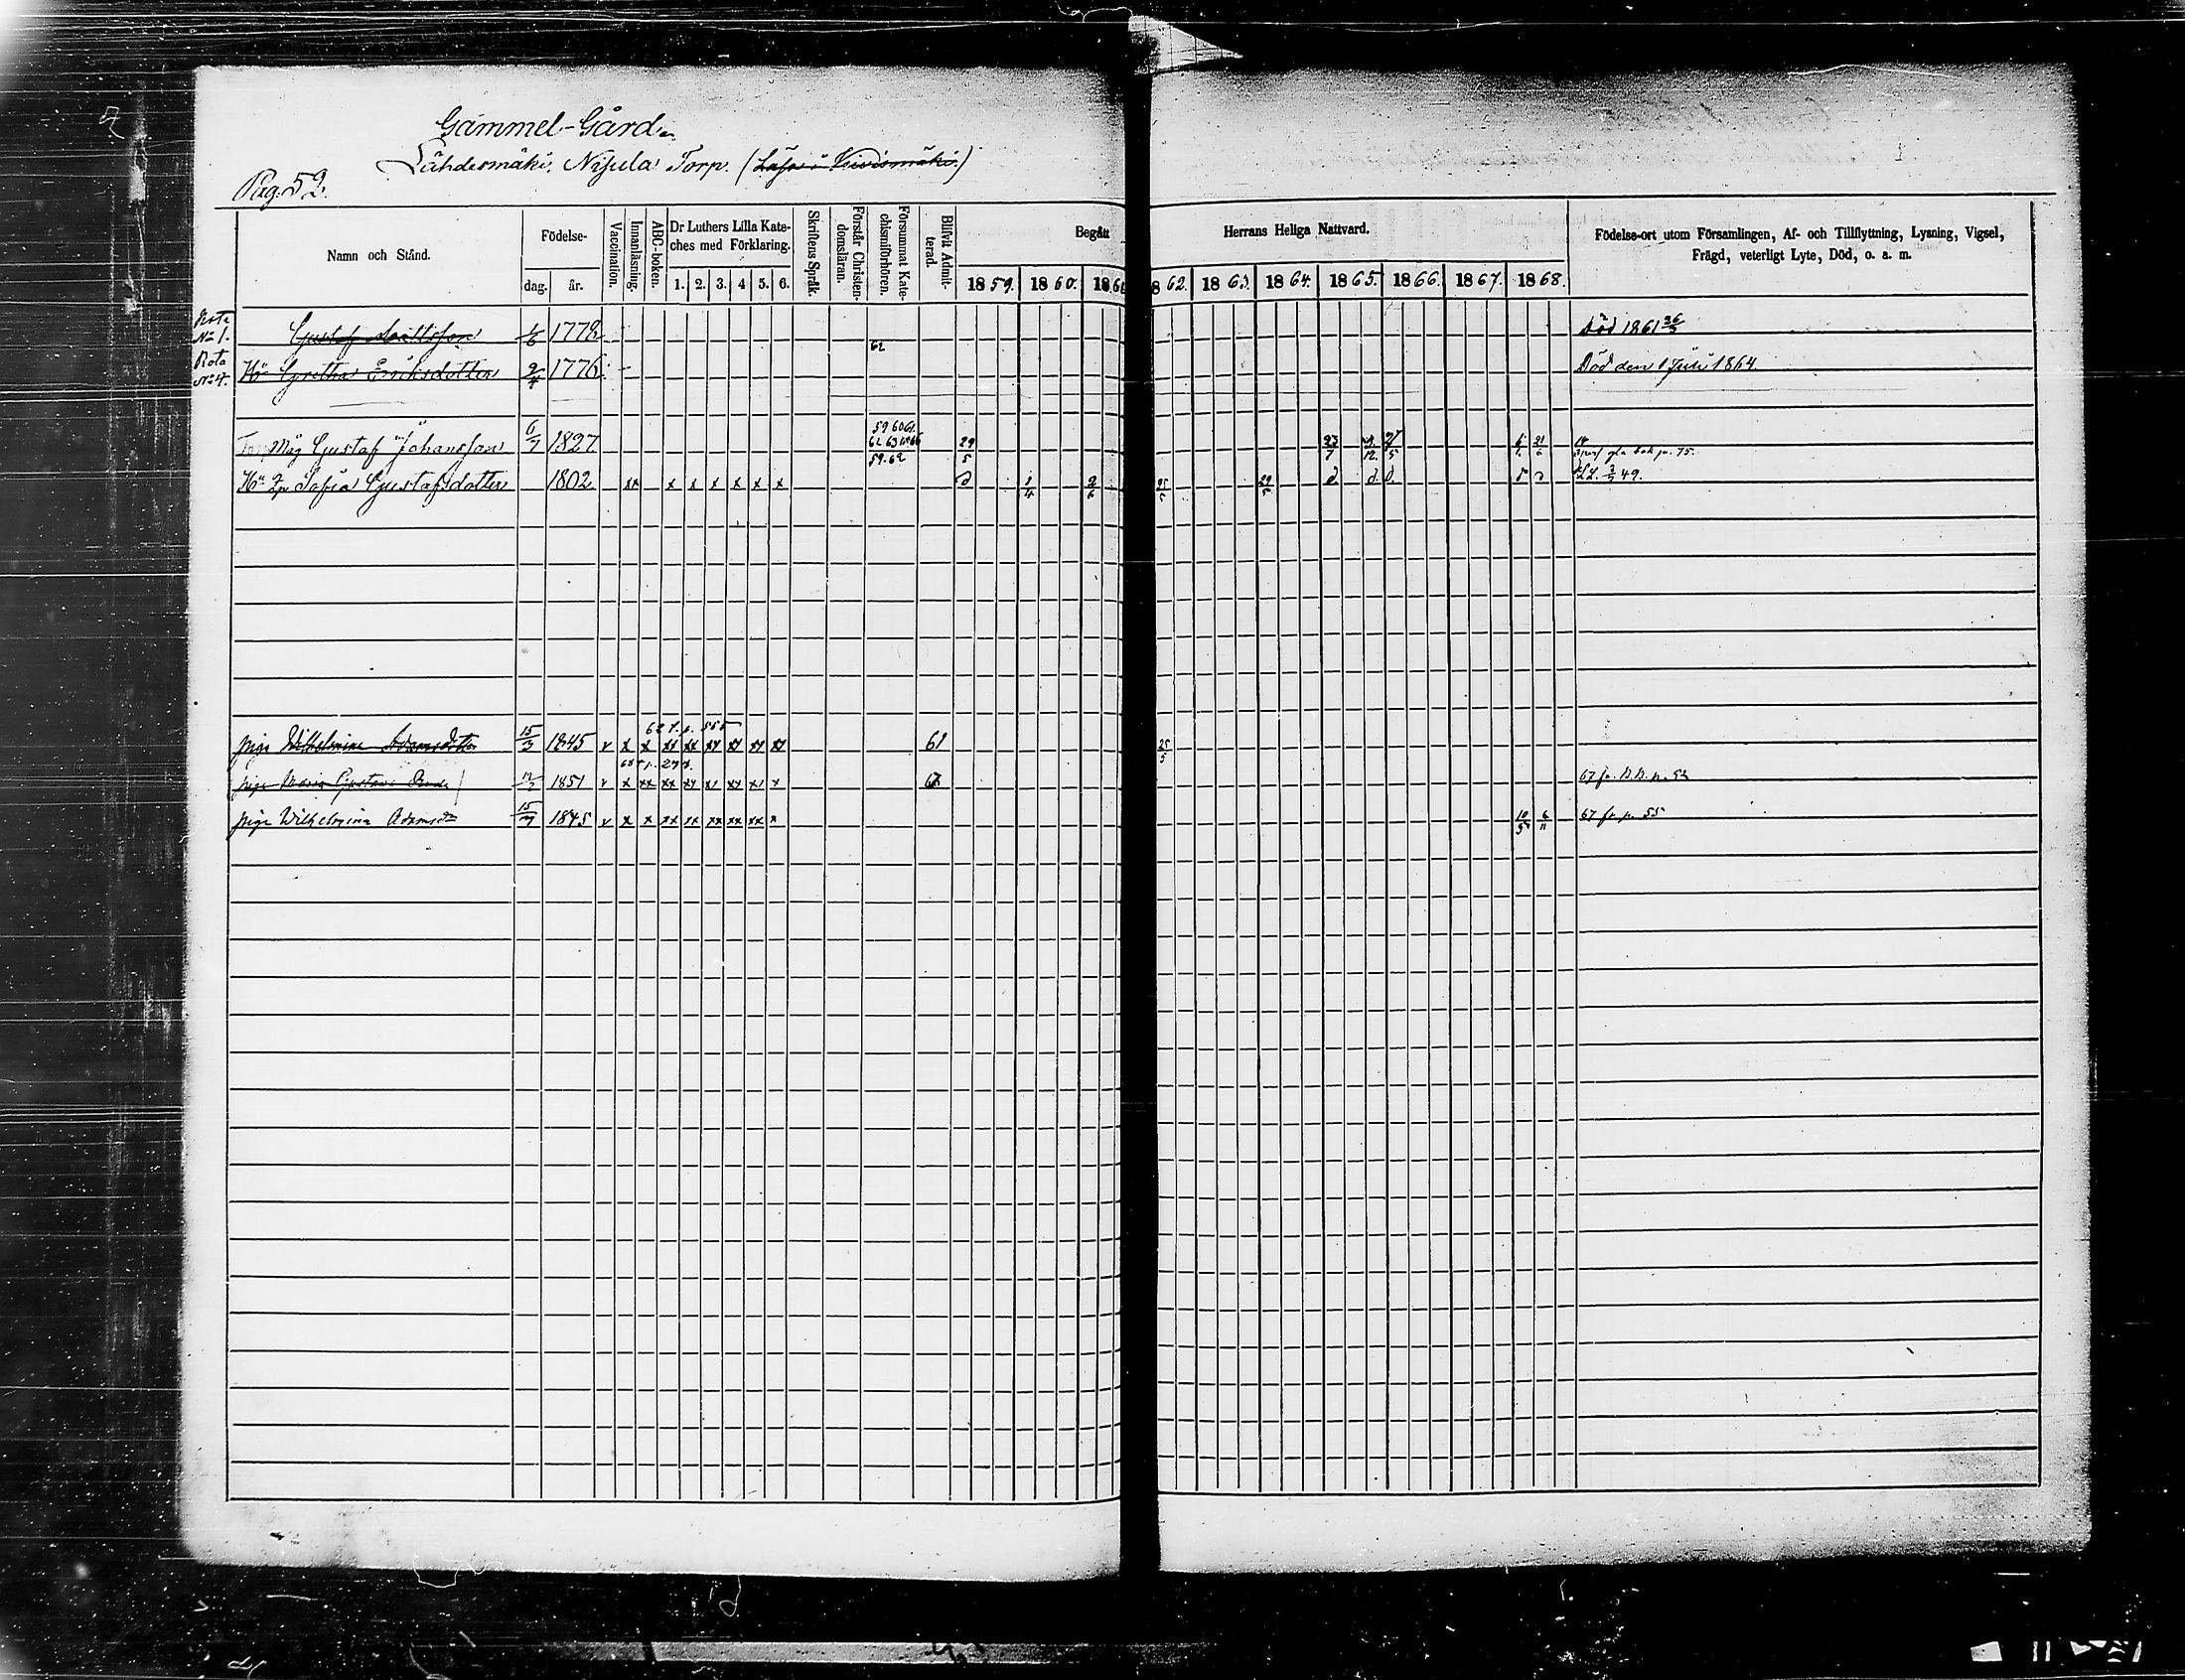 Gammel-Gård.
Lähdesmäki, Nijula Torp. (
Pag. 52.
Namn och Stånd.
Födelse-
dag. år.
Vaccination.
Innanläsning.
ABC-boken.
Dr Luthers Lilla Kate-
ches med Förklaring.
1. 2. 3. 4 5. 6.
Skriftens Språk.
Förstår Christen-
domsläran.
Försummat Kate-
chismiförhören.
Blifvit Admit-
terad.
Begått Herrans Heliga Nattvard.
1859. 1860. 1861 62. 1863. 1864. 1865. 1866. 1867. 1868.
Födelse-ort utom Församlingen, Af- och Tillflyttning, Lysning, Vigsel,
Frägd, veterligt Lyte, Död, o. a. m.
Nº 1. Gustaf Mattsson 1/6 1778 Död 1861 26/5
62
Rota
Nº 4. Hu Gretha Eriksdotter 2/4 1776. Död den 1 Juli 1864.
59 60 61.
Måg Gustaf Johansson 6/7 1827. 29/5 23/7
59. 62
Hu Sofia Gustafsdotter 1802 xx x x x x x x d 1/4 2/6 25/5 29/5 d d d. 49.
62 t. p. 555
piga Wilhelmina Adamsdotter 15/3 1845 v x x xx xx xx xx xx xx 61 25/5
piga Maria Gustava 1851 v x xx xx xx xx xx x 67 fr. p. 52
piga Wilhelmina Adamsdr 15/3 1845 v x x xx xx xx xx xx x 10/5 6/11 67 fr p. 55